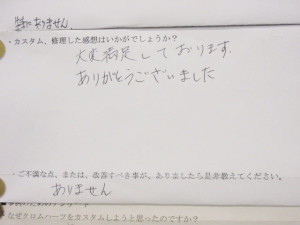 特にありません。
・カスタム、修理した感想はいかがでしょうか？
大変満足しております。
ありがとうございました
・ご不満な点、または、改善すべき事が、ありましたら是非教えてください。
ありません
・なぜクロムハーツをカスタムしようと思ったのですか？